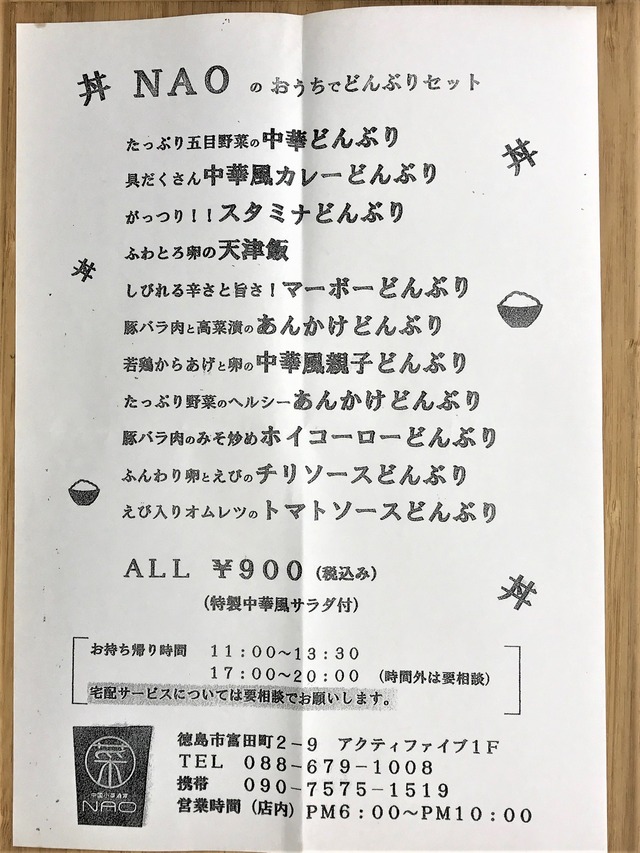 丼 NAO の おうちでどんぶりセット
たっぷり五目野菜の中華どんぶり
具だくさん中華風カレーどんぶり
がっつり！！スタミナどんぶり
ふわとろ卵の天津飯
しびれる辛さと旨さ！マーボーどんぶり
豚バラ肉と高菜漬のあんかけどんぶり
若鶏からあげと卵の中華風親子どんぶり
たっぷり野菜のヘルシーあんかけどんぶり
豚バラ肉のみそ炒めホイコーローどんぶり
ふんわり卵とえびのチリソースどんぶり
えび入りオムレツのトマトソースどんぶり
丼
丼
ALL ￥900（税込み）
（特製中華風サラダ付）
丼
お持ち帰り時間 11:00～13:30
17:00～20:00 （時間外は要相談）
宅配サービスについては要相談でお願いします。
徳島市富田町2－9 アクティファイブ1F
TEL 088－679－1008
携帯 090－7575－1519
営業時間（店内）PM6：00～PM10：00
NAO